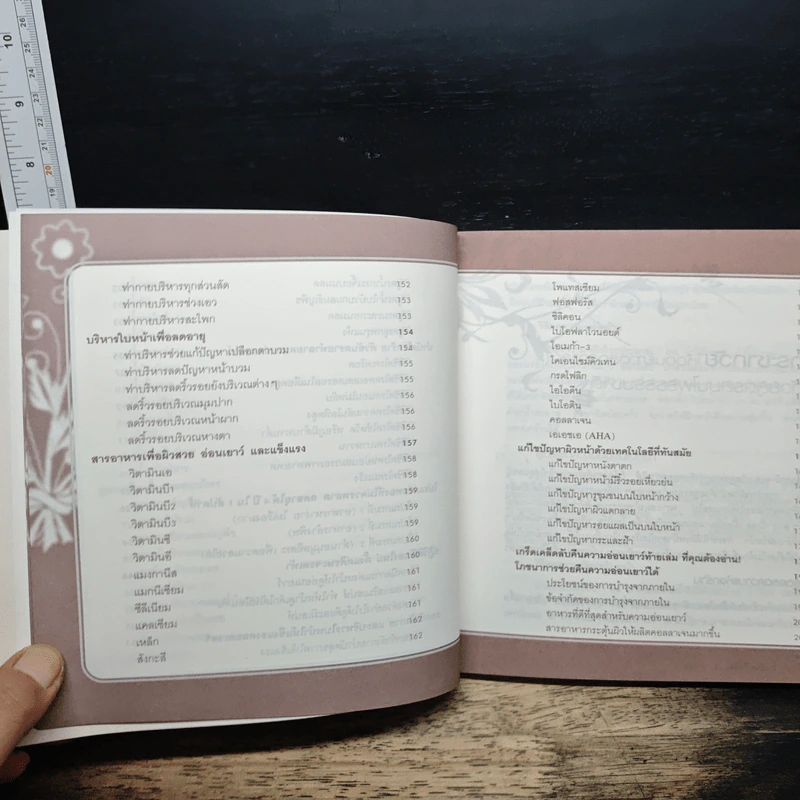 ท่ากายบริหารทุกส่วนลัด 152
ท่ากายบริหารช่วงเอว 153
ท่ากายบริหารสะโพก 153
บริหารใบหน้าเพื่อลดอายุ 154
ท่าบริหารช่วยแก้ปัญหาเปลือกตาบวม 154
ท่าบริหารลดปัญหาหน้าบวม 155
ท่าบริหารลดริ้วรอยยังบริเวณต่างๆ 155
ลดริ้วรอยบริเวณมุมปาก 156
ลดริ้วรอยบริเวณหน้าผาก 156
ลดริ้วรอยบริเวณหางตา 156
สารอาหารเพื่อผิวสวย อ่อนเยาว์ และแข็งแรง 157
วิตามินเอ 158
วิตามินบี1 158
วิตามินบี2 159
วิตามินบี3 159
วิตามินซี 159
วิตามินอี 160
แมงกานีส 161
แมกนีเซียม 161
ซีลีเนียม 161
แคลเซียม 161
เหล็ก 162
สังกะสี 162
โพแทสเซียม
ฟอสฟอรัส
ซิลิคอน
ไบโอฟลาโวนอยด์
โอเมก้า-3
โคเอนไซม์คิวเทน
กรดโฟลิก
ไอโอดีน
ไบโอติน
คอลลาเจน
เอเอชเอ (AHA)
แก้ไขปัญหาผิวหน้าด้วยเทคโนโลยีที่ทันสมัย
แก้ไขปัญหาหนังตาตก
แก้ไขปัญหาหน้ามีริ้วรอยเหี่ยวย่น
แก้ไขปัญหารูขุมขนบนใบหน้ากว้าง
แก้ไขปัญหาผิวแตกลาย
แก้ไขปัญหารอยแผลเป็นบนใบหน้า
แก้ไขปัญหากระและฝ้า
เกร็ดเคล็ดลับคืนความอ่อนเยาว์ท้ายเล่ม ที่คุณต้องอ่าน!
โภชนาการช่วยคืนความอ่อนเยาว์ได้
ประโยชน์ของการบำรุงจากภายใน
ข้อจำกัดของการบำรุงจากภายใน
อาหารที่ดีที่สุดสำหรับความอ่อนเยาว์
สารอาหารกระตุ้นผิวให้ผลิตคอลลาเจนมากขึ้น